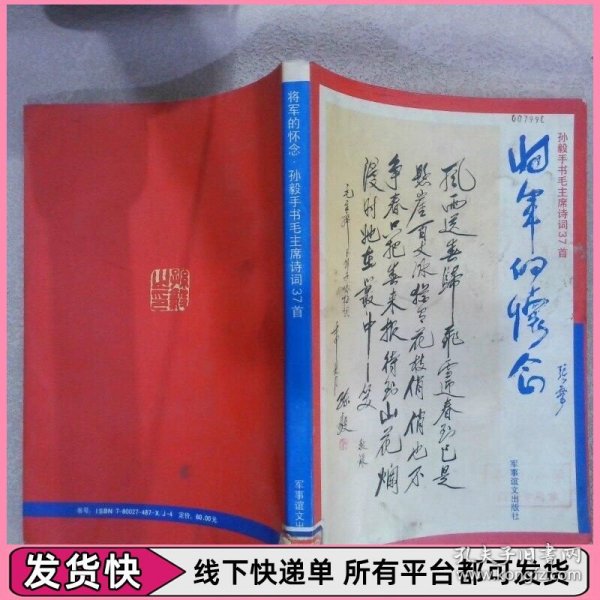 将军的怀念·孙毅手书毛主席诗词37首
军事谊文出版
书号：ISBN 7-80027-487-X/J·4 定价：60.00元
孙毅手书毛主席诗词37首
将军的怀念
张震
007998
风雨送春归飞雪迎春到已是
悬崖百丈冰犹有花枝俏俏也不
争春只把春来报待到山花烂
漫时她在丛中笑
孙毅
敬录
军事谊文出版社
孔夫子旧书网
www.kongfz.com
发货快
线下快递单 所有平台都可发货